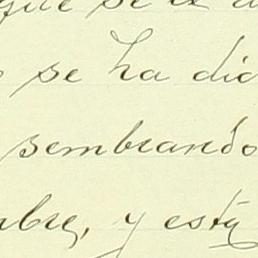 que se
se ha dic
sembrando
mbre, y está